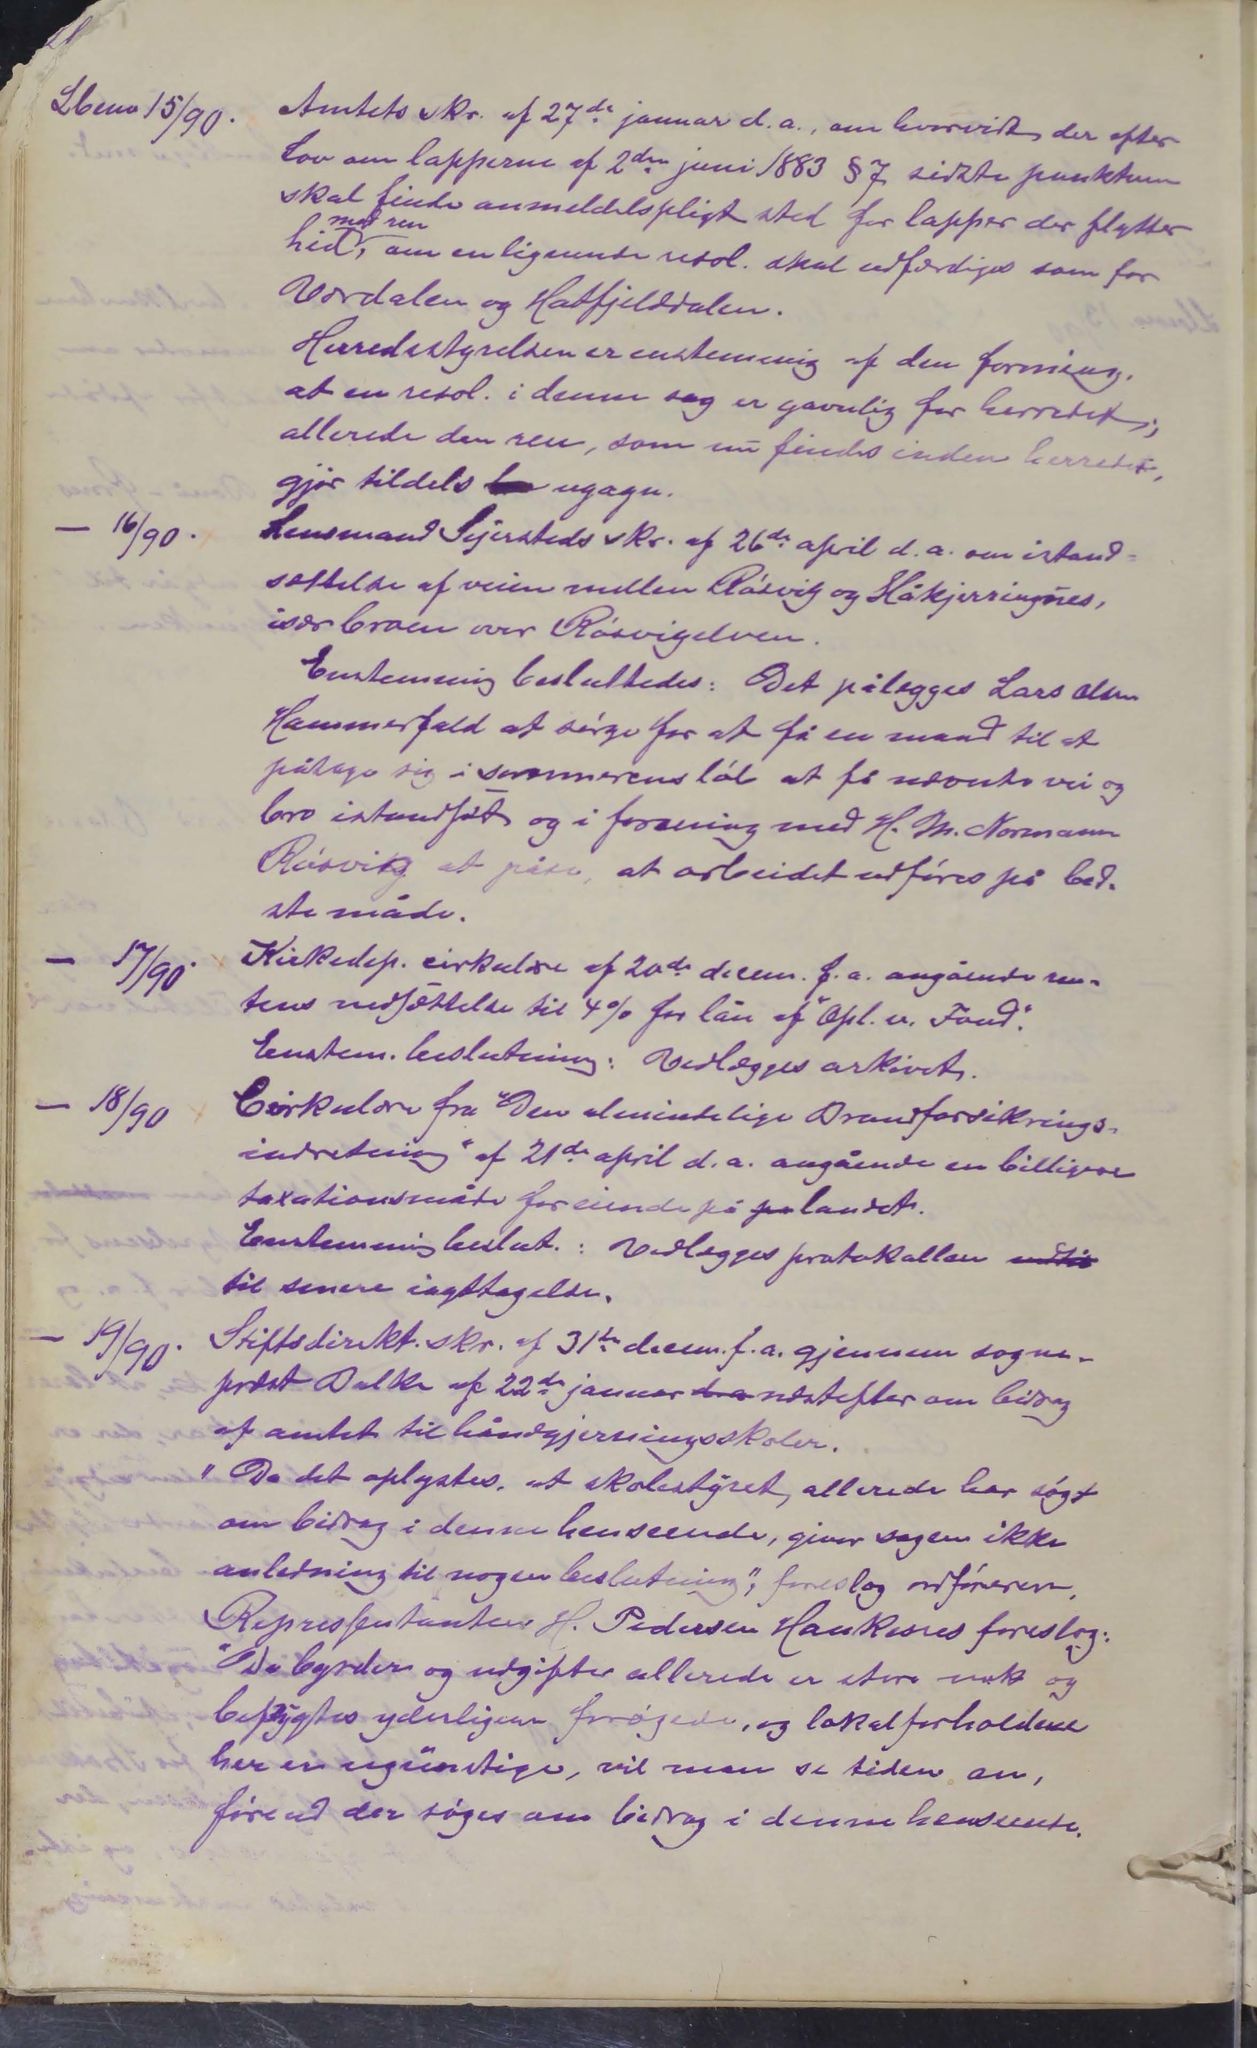 Lbeno 15/90. Amtets skr. af 27de januar d. a., om hvorvidt der efter
Lov om lapperne af 2den juni 1883 § 7 sidste punktum
skal finde anmeldelspligt sted for lapper der flytter
hid med ren, om en lignende resol. skal udfærdiges som for
Værdalen og Hatfjelddalen.
Herredsstyrelsen er enstemmig af den formening,
at en resol. i denne sag er gavnlig for herredet;
allerede den ren, som nu findes inden herredet,
gjør tildels ugagn.
— 16/90. Lensmand Sejersteds skr. af 26de april d. a. om istand-
sættelse af veien mellem Råsvig og Håkjerringnes,
især broen over Røsvigelven.
Enstemmig besluttedes: Det pålægges Lars Olsen
Hammerfald at sörge for at få en mand til at
påtage sig i sommerens löb at få nævnte vei og
bro istandsat og i forening med H. M. Normann
Rösvig at påse, at arbeidet udföres på bed-
ste måde.
— 17/90. Kirkedep. cirkulære af 20de decem. f. a. angående ren-
tens nedsættelse til 4 % for lån af "Opl. v. Fond".
Enstem. beslutning: Vedlægges arkivet.
— 18/90 Cirkulære fra "Den almindelige Brandforsikrings-
indretning" af 21de april d. a. angående en billigere
taxationsmåde for eiende på pa landet.
Enstemmig beslut.: Vedlægges protokollen
til senere iagttagelse.
— 19/90. Stiftsdirekt. skr. af 31te decem. f. a. gjennem sogne-
præst Balke af 22de januar d. a. næstefter om bidrag
af amtet til håndgjerningsskoler.
"Da det oplystes, at skolestyret allerede har søgt
om bidrag i denne henseende, giver sagen ikke
anledning til nogen beslutning", foreslog ordföreren.
Repræsentanten H. Pedersen Haukesnes foreslog:
"Da byrder og udgifter allerede er store nok og
befrygtes yderligere forögede, og lokalforholdene
her er ugunstige, vil man se tiden an,
förend der söges om bidrag i denne henseende.